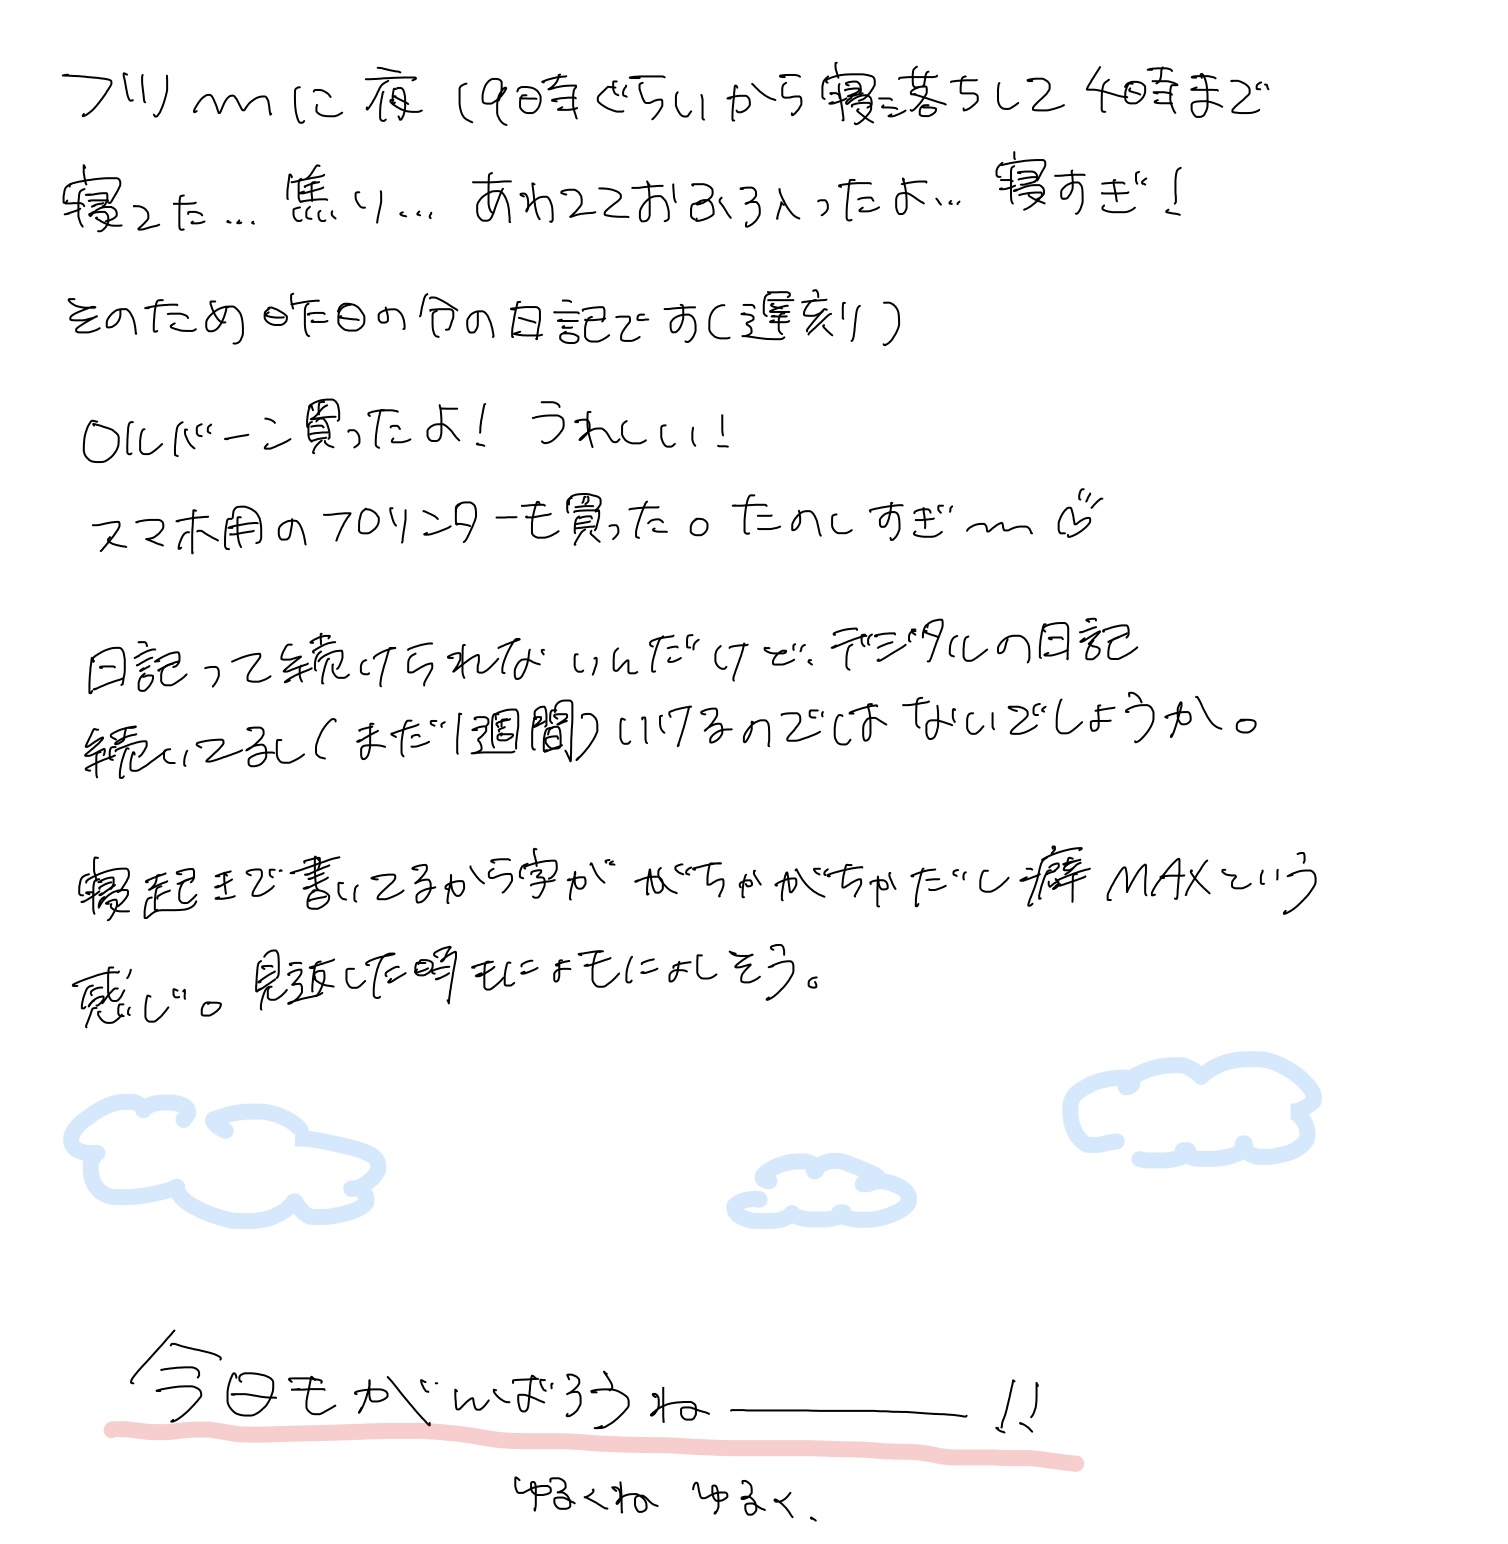 フツ〜に夜19時ぐらいから寝落ちして4時まで
寝てた…焦り…あわてておふろ入ったよ…寝すぎ!
そのため昨日の分の日記です(遅刻り)
ロルバーン買ったよ! うれしい!
スマホ用のプリンターも買った。たのしすぎ〜♡
日記って続けられないんだけど、デジタルの日記
続いてるし(まだ1週間)いけるのではないでしょうか。
寝起きで書いてるから字ががちゃがちゃだし癖MAXという
感じ。見返した時もにょもにょしそう。
今日もがんばろうね――!!
ゆるくね ゆるく、